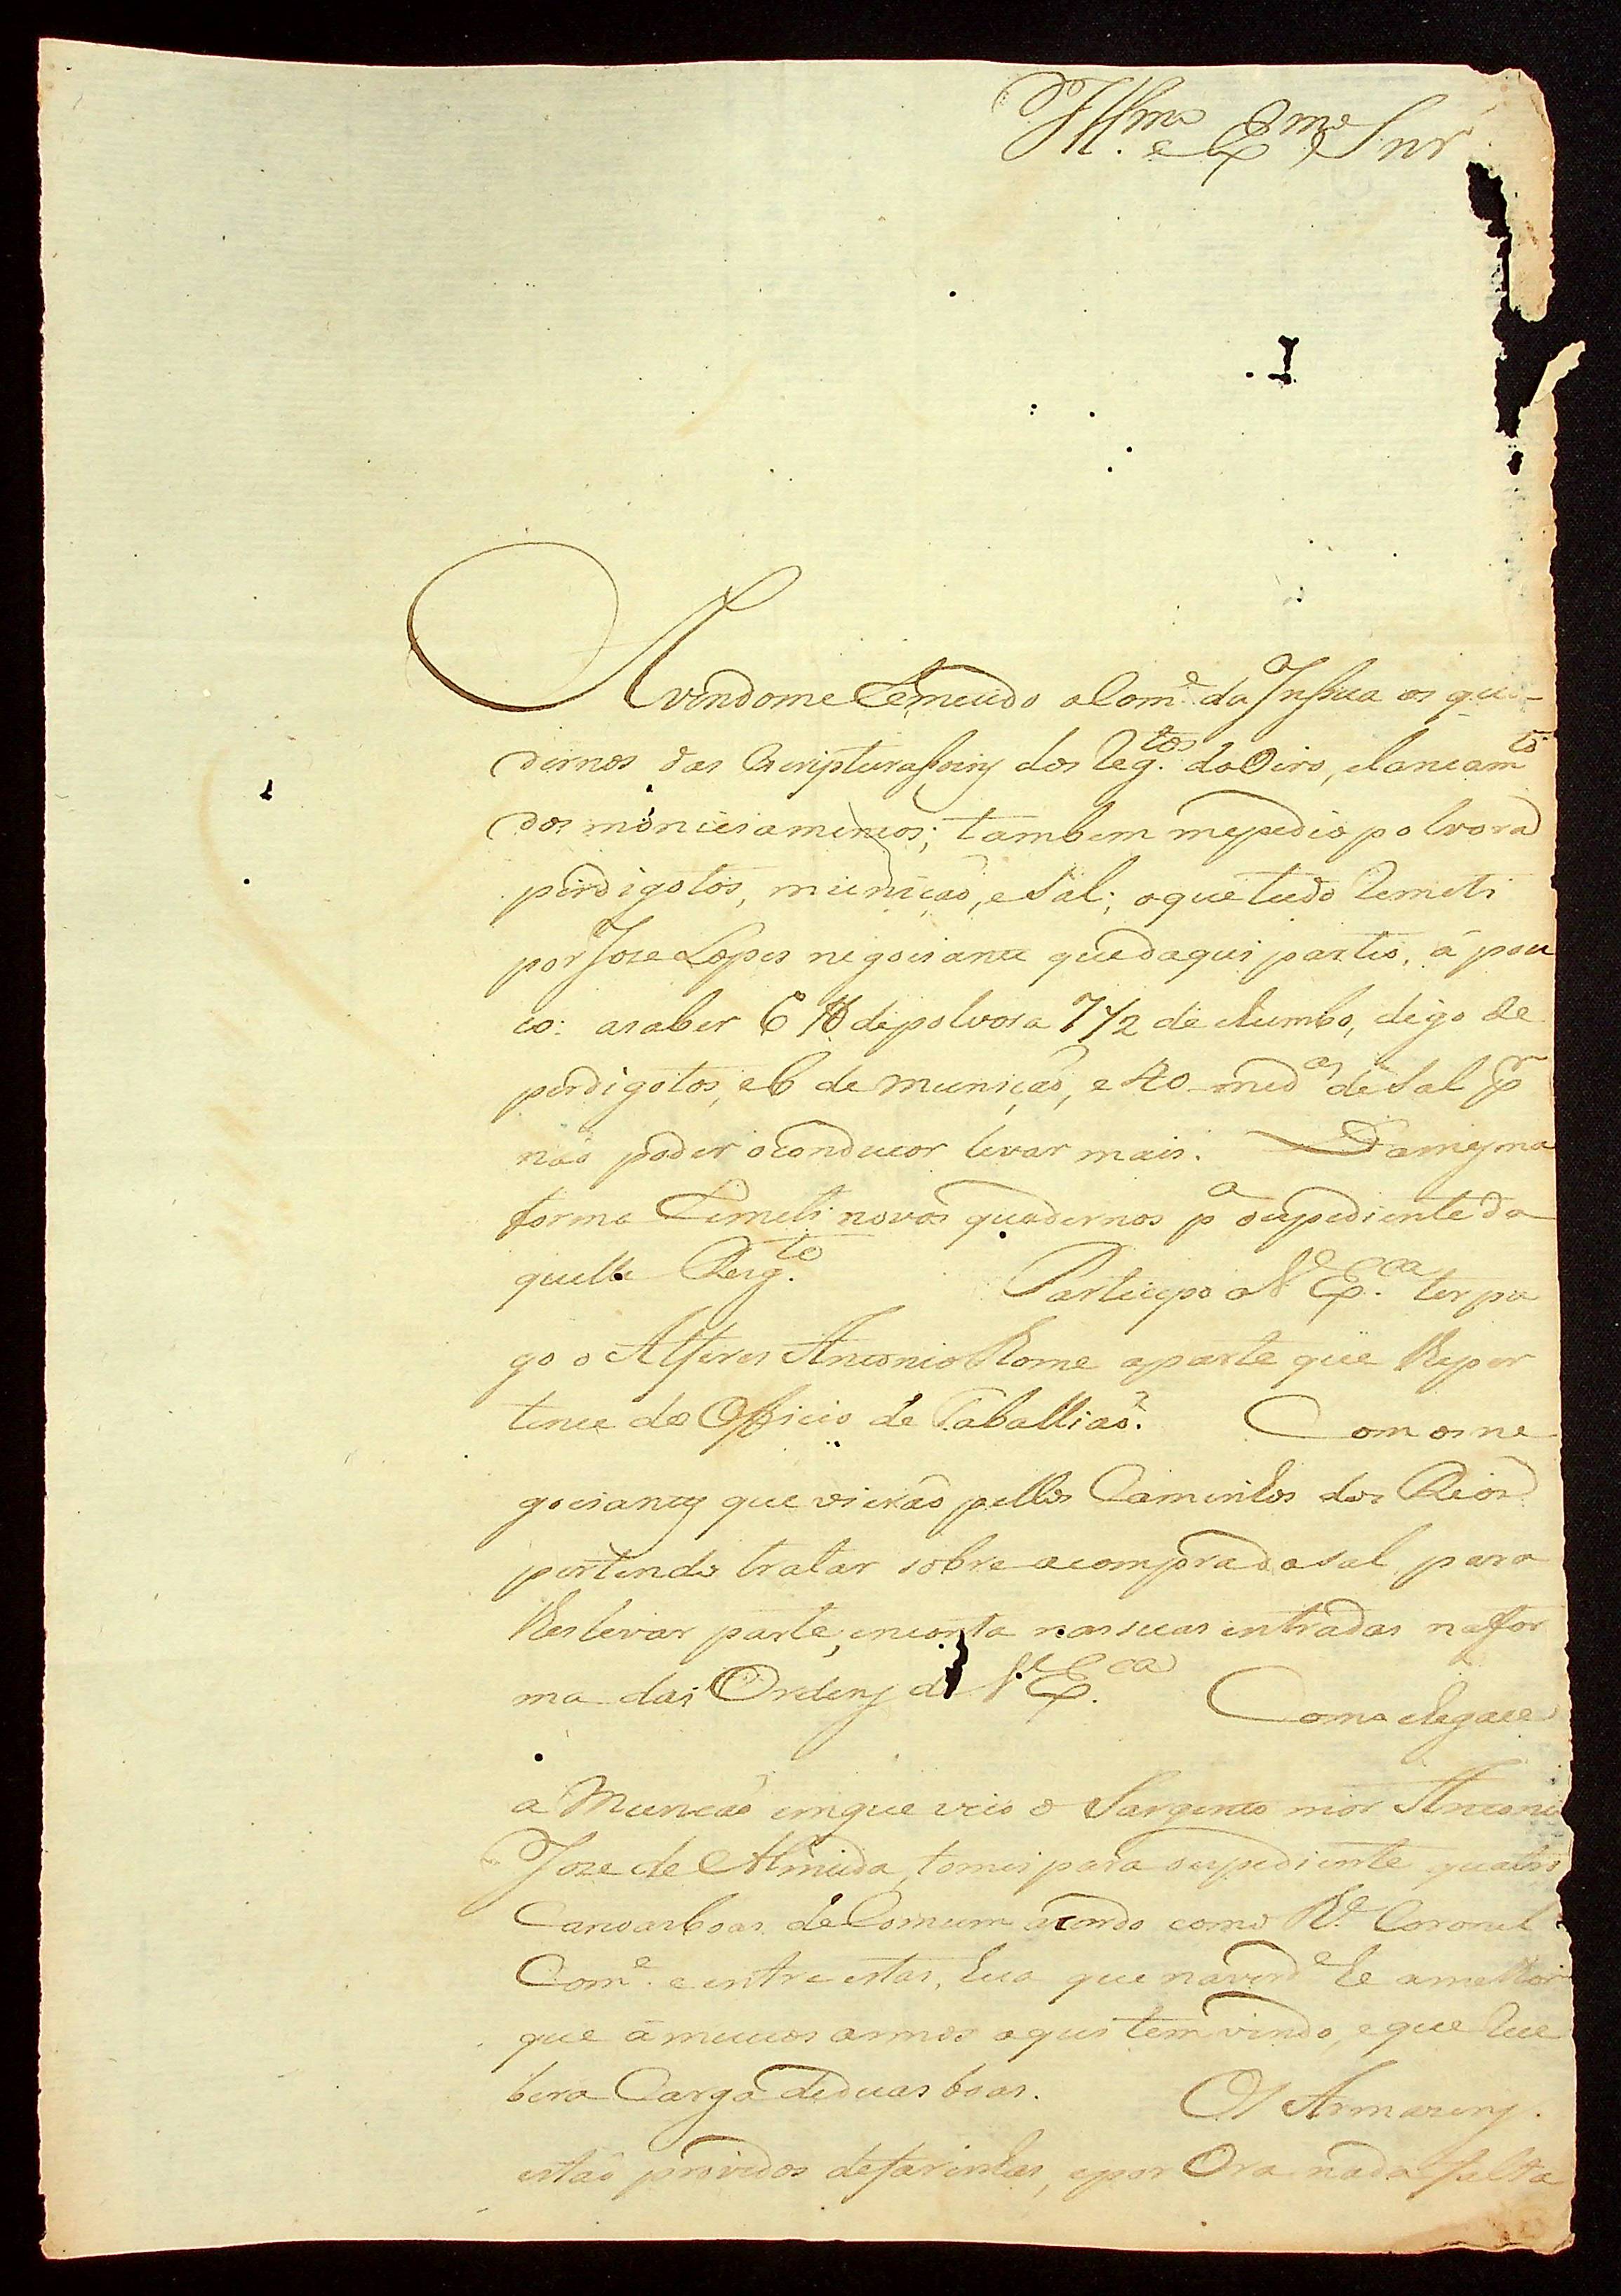 Illmo e Exmo Snr
Avendome Remetido o Come da Insua os qua-
dernos das Escripturassoins dos Regtos do Oiro, e lancamto
dos mantimentos; tambem mepedio polvora
perdigotos, munição, e Sal; oque tudo Remeti
por Joze Lopes negociante que daqui partio, á pou
co: asaber 6 lb depolvora 7 1/2 de chumbo, digo de
perdigotos, e 6 de munição, e 40 medas de Sal pr
não poder oconductor levar mais. Damesma
forma Remeti novos quadernos pa oexpediente da
quelle Regto. Participo a Ve Exca ter pa
go o Alferes Antonio Rome aparte que lheper
tence do Officio de Taballião. Com os ne
gociantes que vierão pellos Caminhos dos Rios
pertendo tratar sobre acompra do sal, para
lheslevar parte, emconta nas suas entradas na for
ma das Ordens de Ve Exca. Como chegace
a Munção emque veio o Sargento mór Antonio
Joze de Almeida, tomei para oexpediente quatro
Canoas boas de Comum acordo como Re Coronel
Come e entre estas, hua que naverde he amelhor
que ámuitos annos aqui tem vindo, e que Rece
bera Carga deduas boas. Os Armazens
estão providos defarinhas, epor Ora nada falta